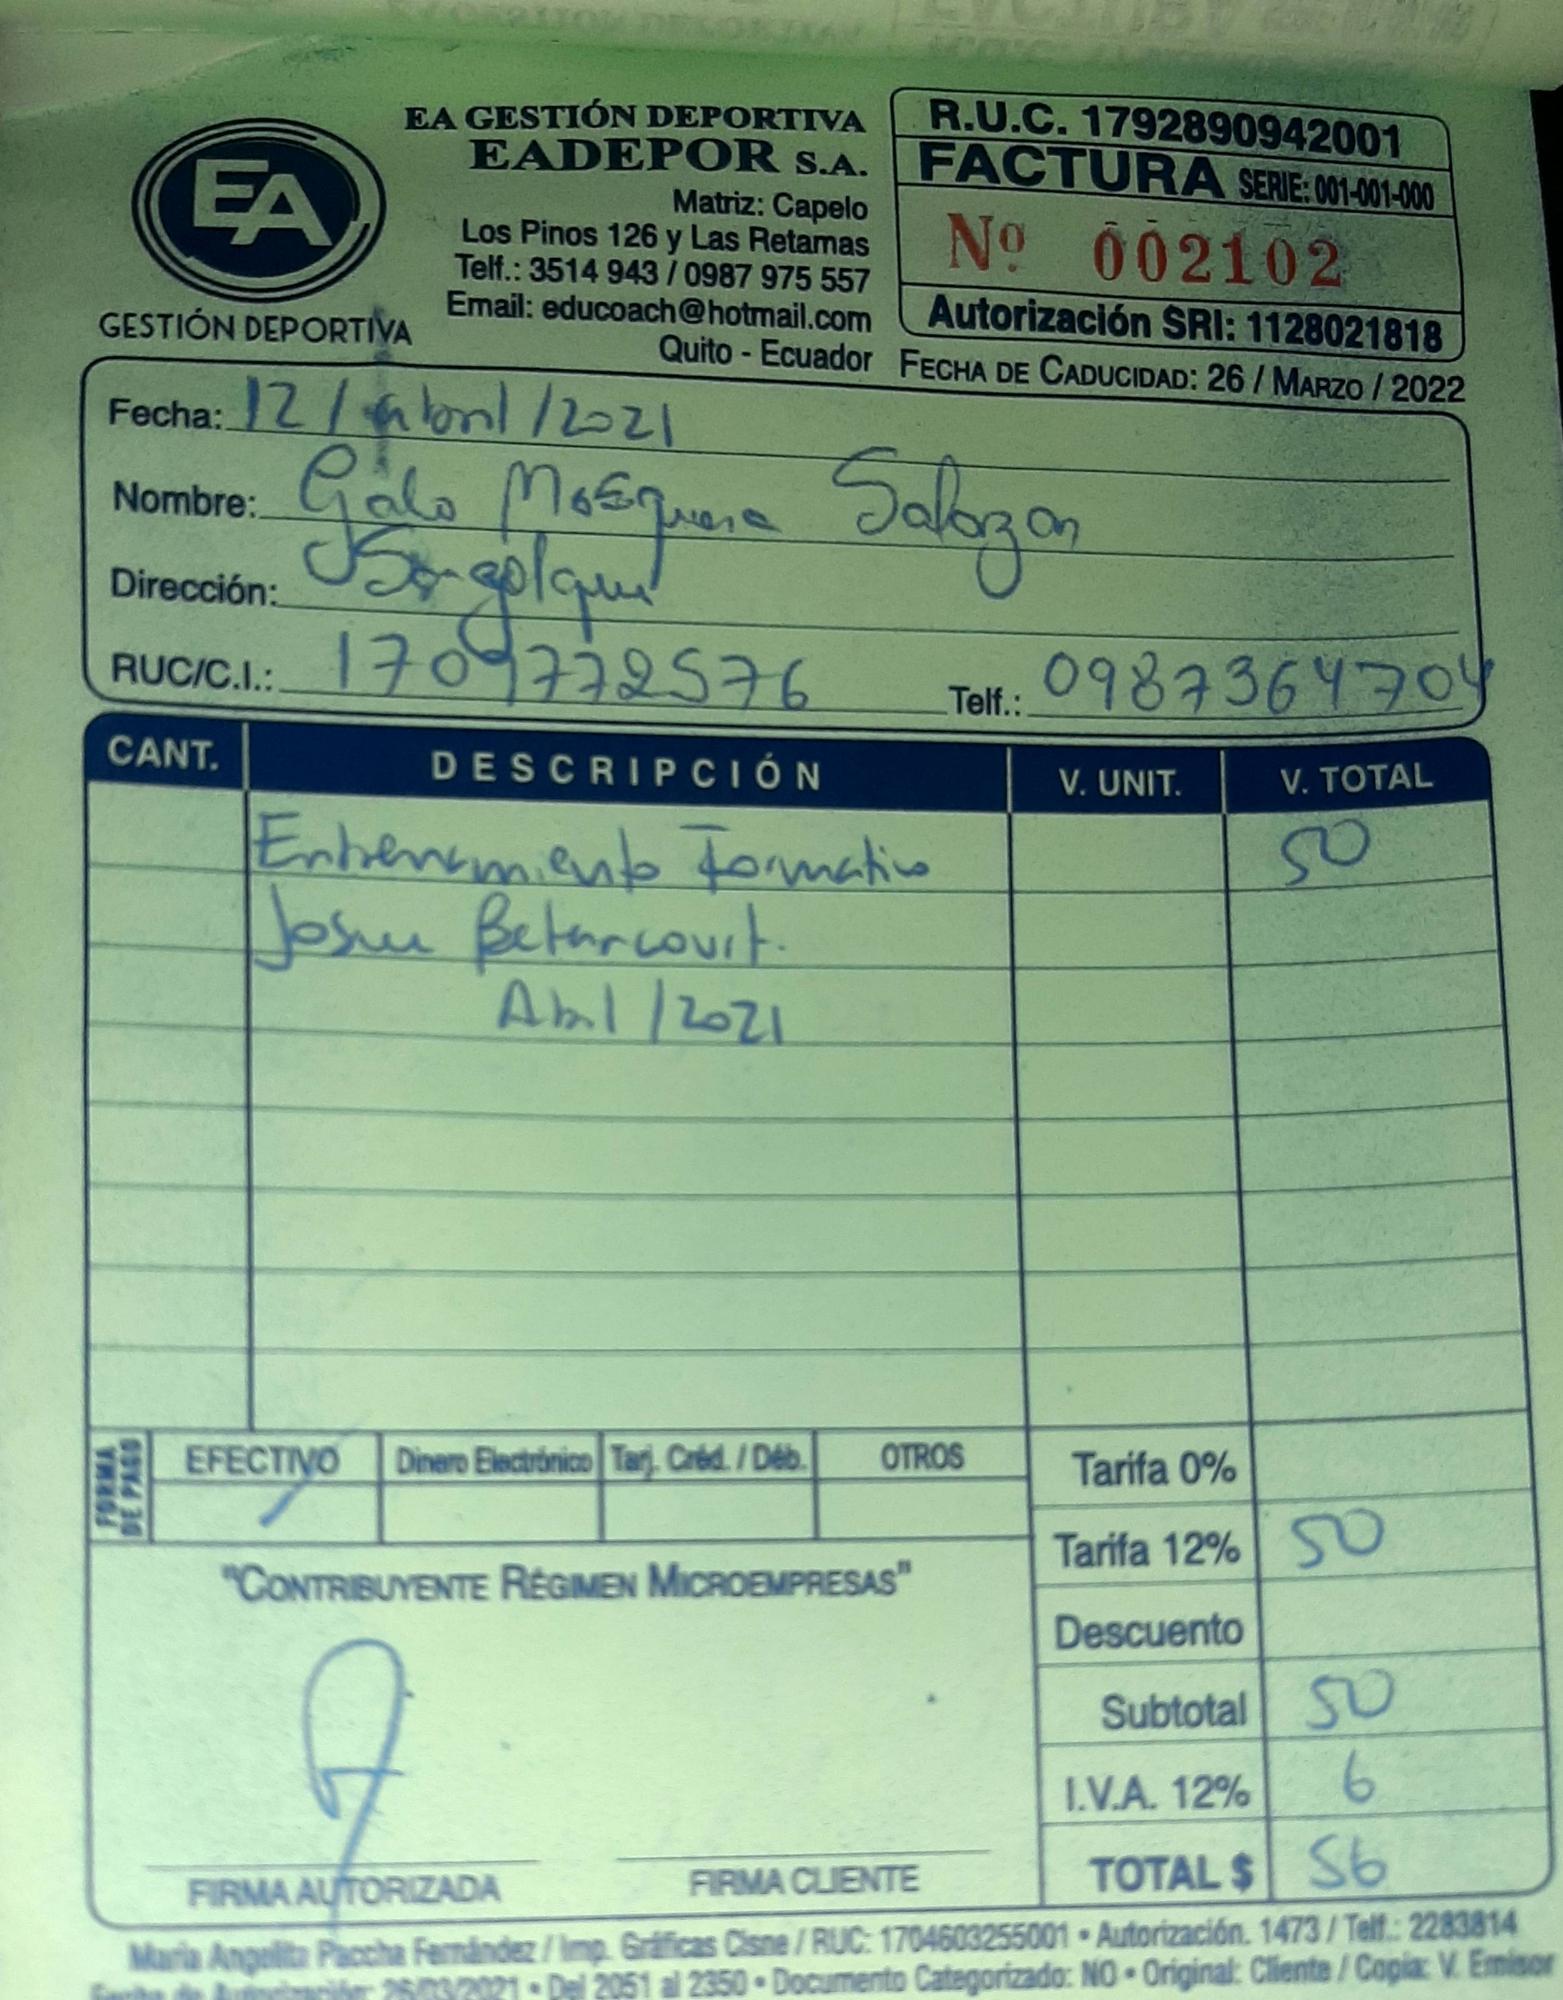 EA GESTIÓN DEPORTIVA
EADEPOR S.A.
Matriz: Capelo
Los Pinos 126 y Las Retamas
Telf.: 3514 943 / 0987 975 557
Email: educoach@hotmail.com
Quito - Ecuador
EA
GESTIÓN DEPORTIVA
R.U.C. 1792890942001
FACTURA SERIE: 001-001-000
Nº 002102
Autorización SRI: 1128021818
FECHA DE CADUCIDAD: 26 / MARZO / 2022
Fecha: 12 / abril / 2021
Nombre: Galo Mosquera Salazar
Dirección: Sangolqui
RUC/C.I.: 1709772576 Telf.: 0987364704
CANT. DESCRIPCIÓN V. UNIT. V. TOTAL
Entrenamiento Formativo 50
Josue Betancourt.
Abril / 2021
FORMA DE PAGO
EFECTIVO Dinero Electrónico Tarj. Créd. / Déb. OTROS
Tarifa 0%
Tarifa 12% 50
"CONTRIBUYENTE RÉGIMEN MICROEMPRESAS"
Descuento
Subtotal 50
I.V.A. 12% 6
TOTAL $ 56
FIRMA AUTORIZADA FIRMA CLIENTE
Maria Angelita Paccha Fernández / Imp. Gráficas Cisne / RUC: 1704603255001 • Autorización. 1473 / Telf.: 2283814
Fecha de Autorización: 26/03/2021 • Del 2051 al 2350 • Documento Categorizado: NO • Original: Cliente / Copia: V. Emisor